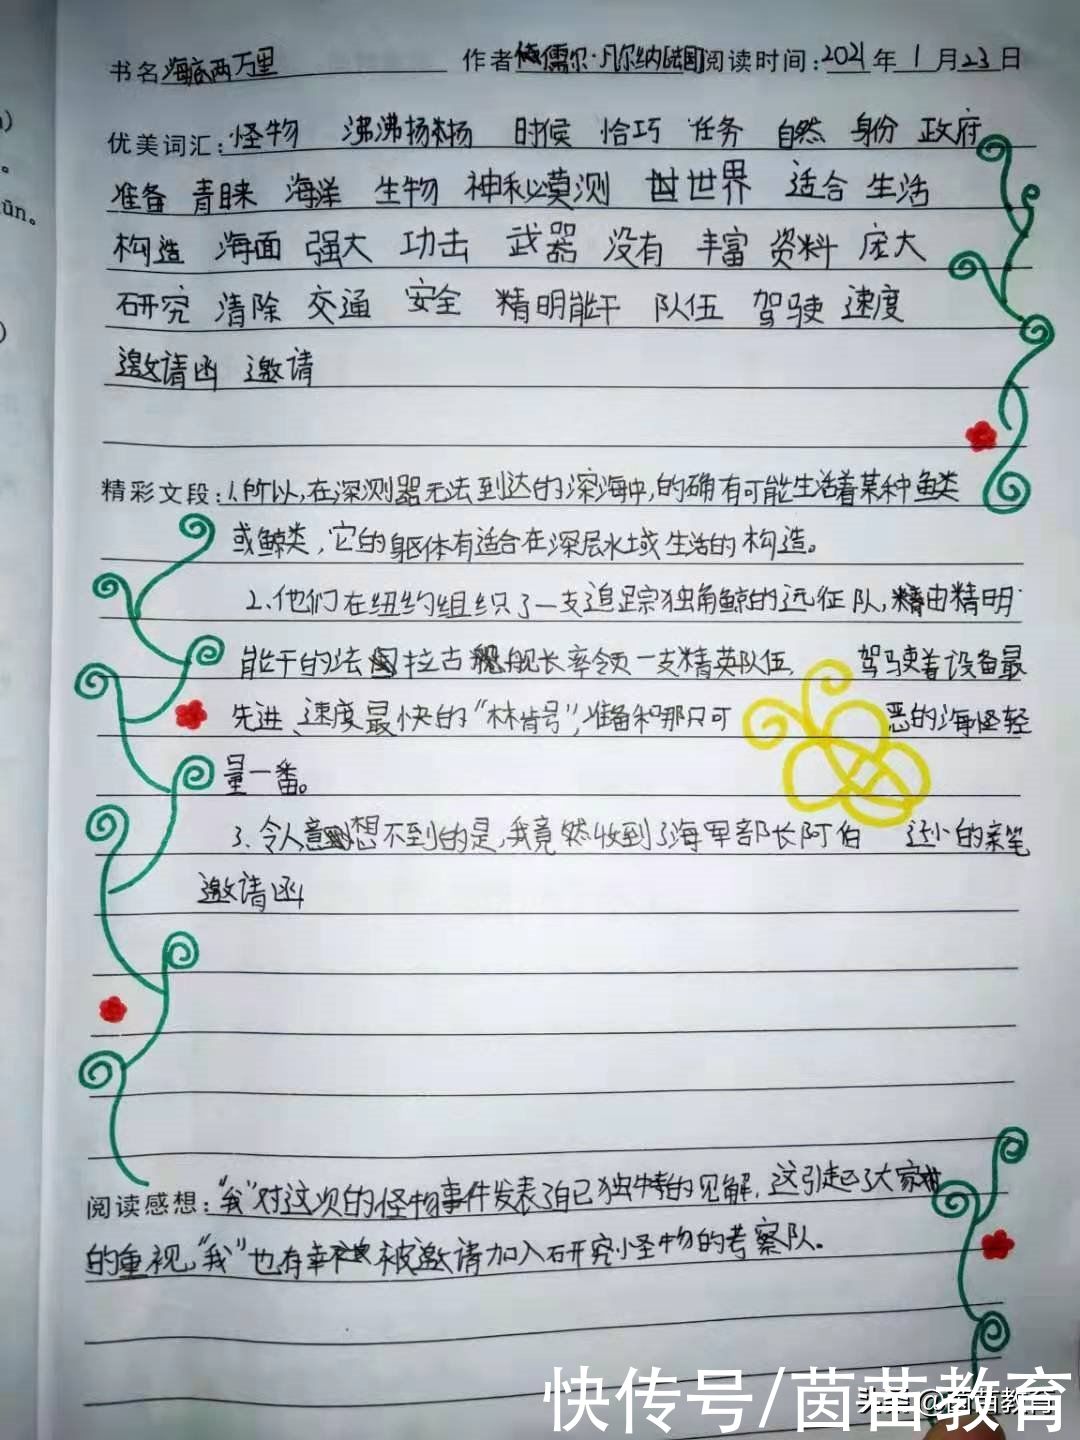 书名海底两万里 作者儒尔·凡尔纳[法国]阅读时间:2021年1月23日
优美词汇:怪物 沸沸扬扬 时候 恰巧 任务 自然 身份 政府
准备 青睐 海洋 生物 神秘莫测 世界 适合 生活
构造 海面 强大 功击 武器 没有 丰富 资料 庞大
研究 清除 交通 安全 精明能干 队伍 驾驶 速度
邀请函 邀请
精彩文段:1.所以,在深测器无法到达的深海中,的确有可能生活着某种鱼类
或鲸类,它的躯体有适合在深层水域生活的构造。
2、他们在纽约组织了一支追踪独角鲸的远征队,由精明
能干的法拉古舰长率领一支精英队伍, 驾驶着设备最
先进、速度最快的“林肯号”,准备和那只可 恶的海怪轻
量一番。
3、令人意想不到的是,我竟然收到了海军部长阿伯 逊的亲笔
邀请函
阅读感想:“我”对这次的怪物事件发表了自己独特的见解,这引起了大家
的重视,“我”也有幸被邀请加入研究怪物的考察队。
快传号/茵苗教育
头条@茵苗教育
ūn。